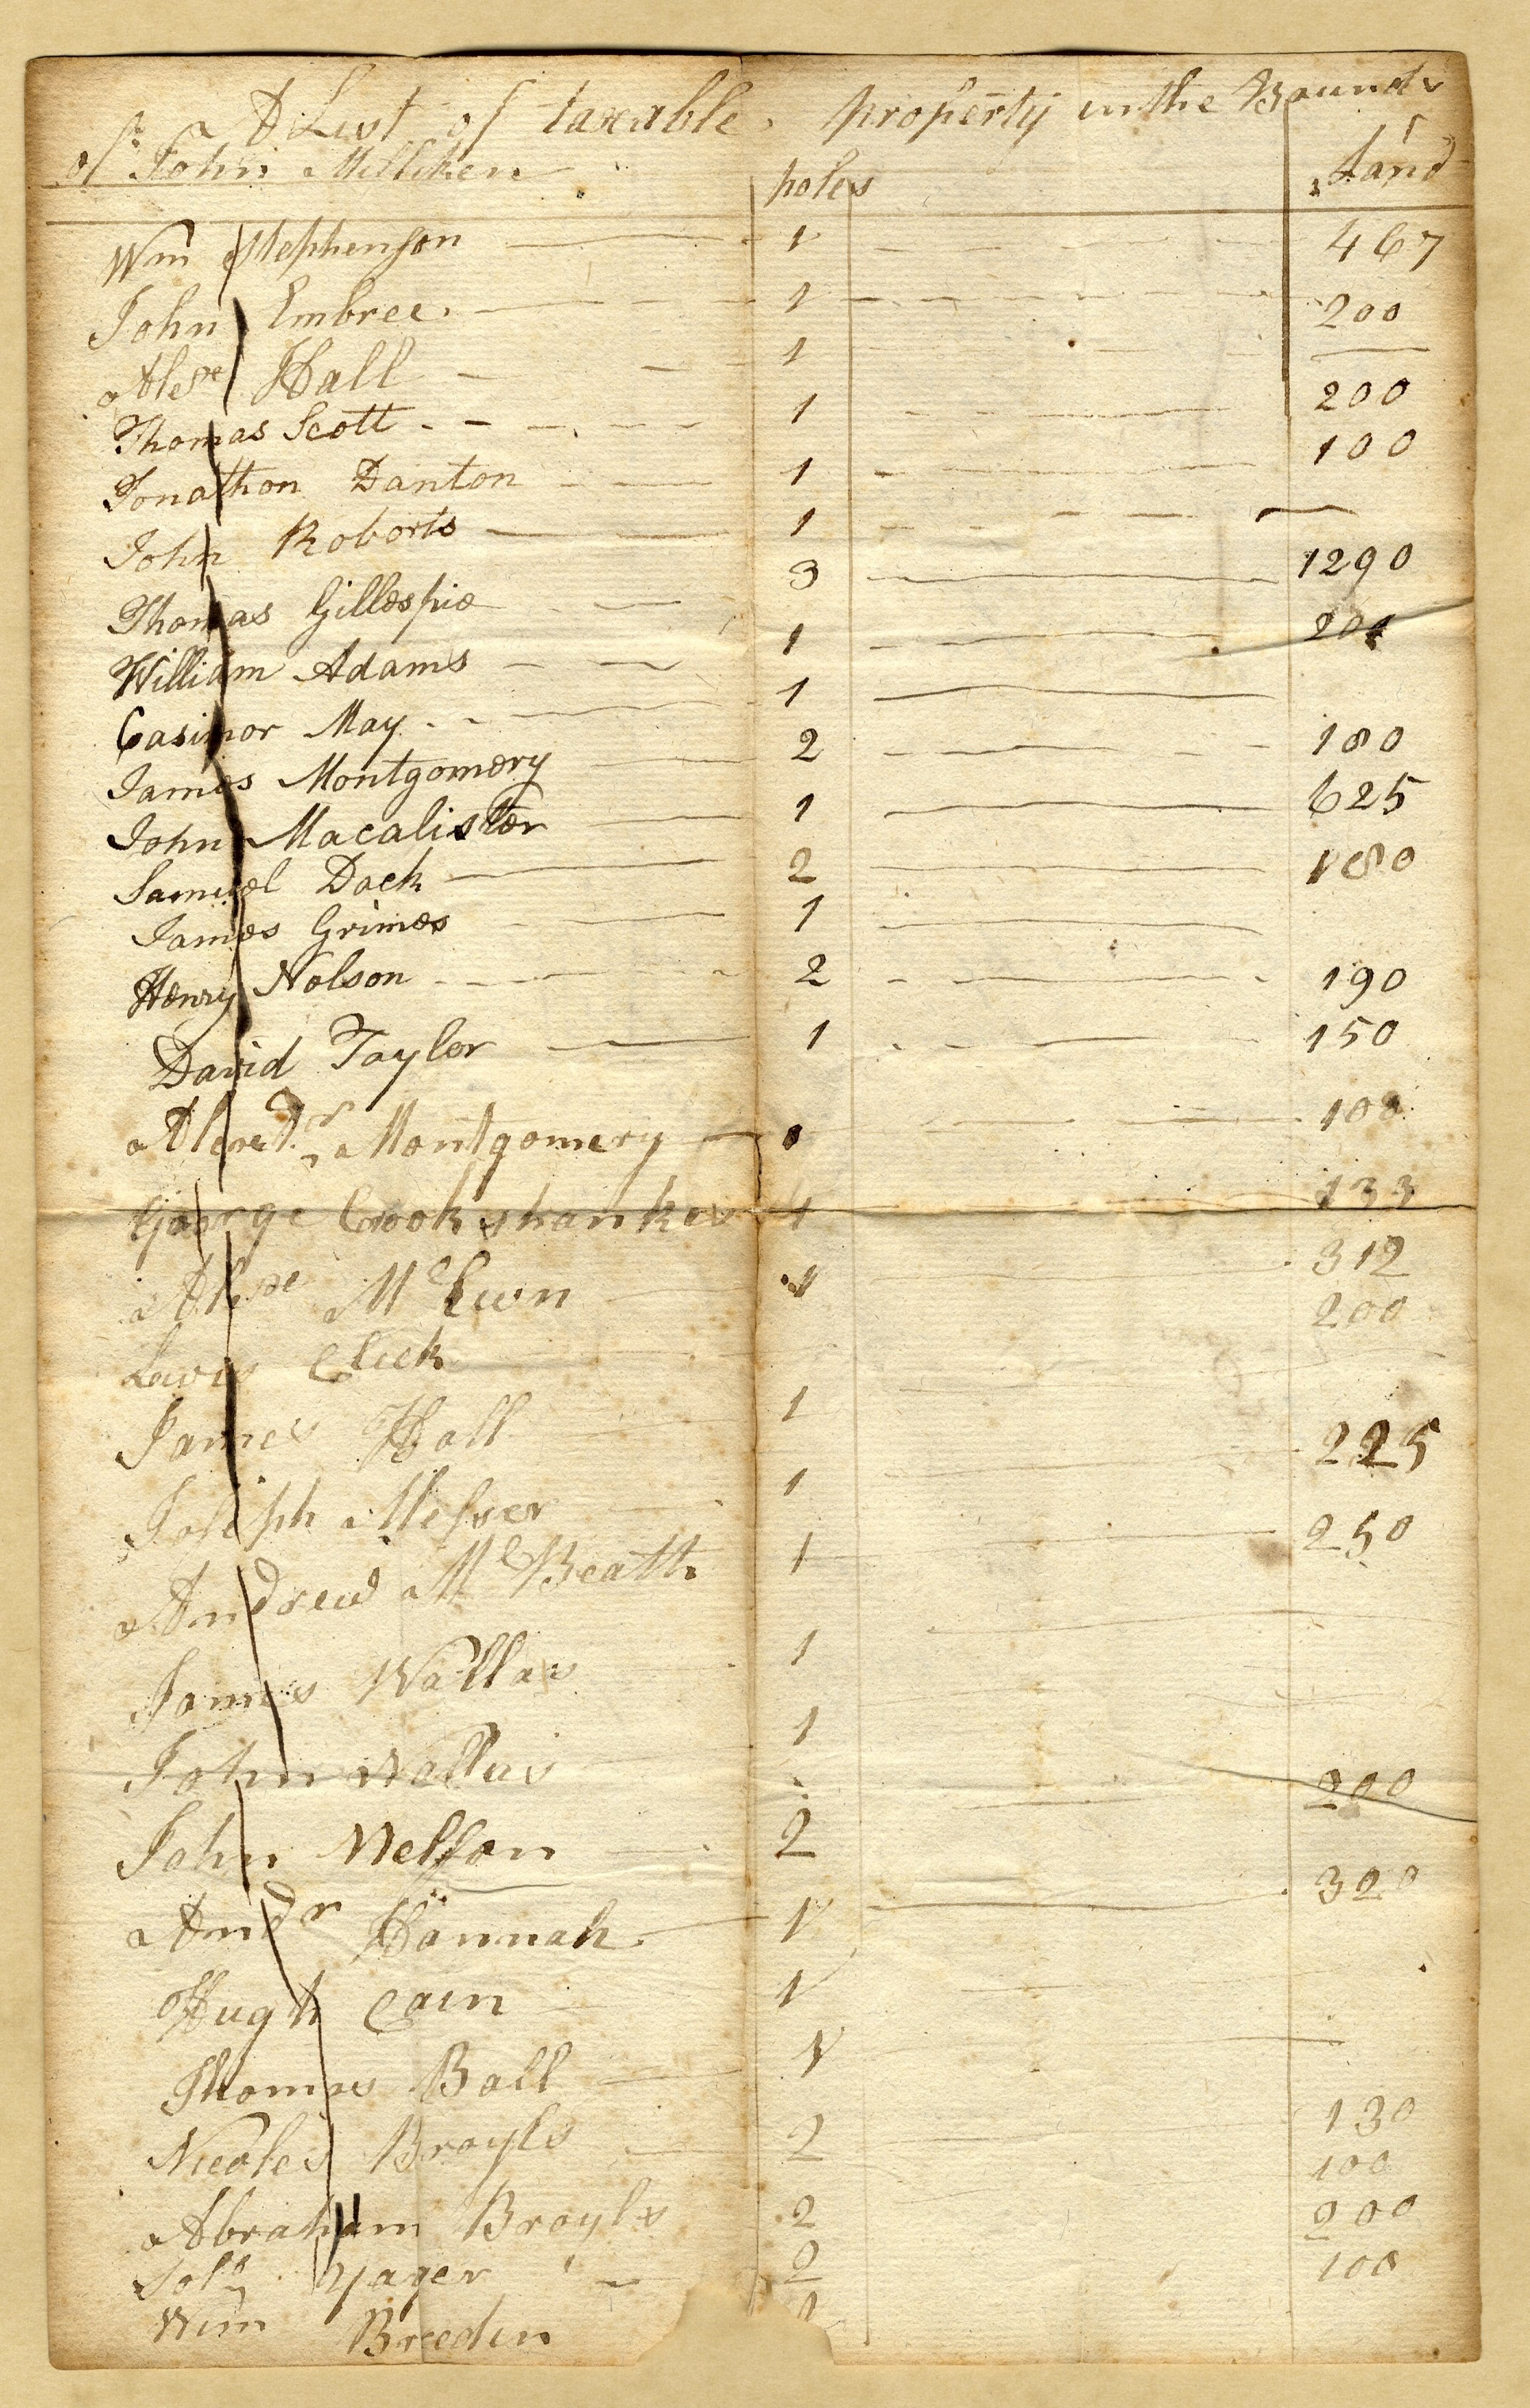 A List of taxable property in the Bounds
of John Milliken poles Land
Wm Stephenson 1 467
John Embree 1 200
Alexe Hall 1
Thomas Scott 1 200
Jonathon Danton 1 100
John Roberts 1
Thomas Gillespie 3 1290
William Adams 1 200
Casimor May 1
James Montgomery 2 180
John Macalister 1 625
Samuel Dack 2 180
James Grimes 1
Henry Nelson 2 190
David Taylor 1 150
Alexdr Montgomery 100
George Crookshankes 1 133
Alexe McEwn 1 312
Lewis Click 200
James Hall 1
Joseph Messer 1 225
Andrew McBeath 1 250
James Wallas 1
John Wallas 1
John Nelson 2 200
Andr Hannah 1 320
Hugh Cain 1
Thomas Ball 1
Nicoles Broyls 2 130
100
Abraham Broyls 2 200
Soln Yager 2 100
Wim Breeden